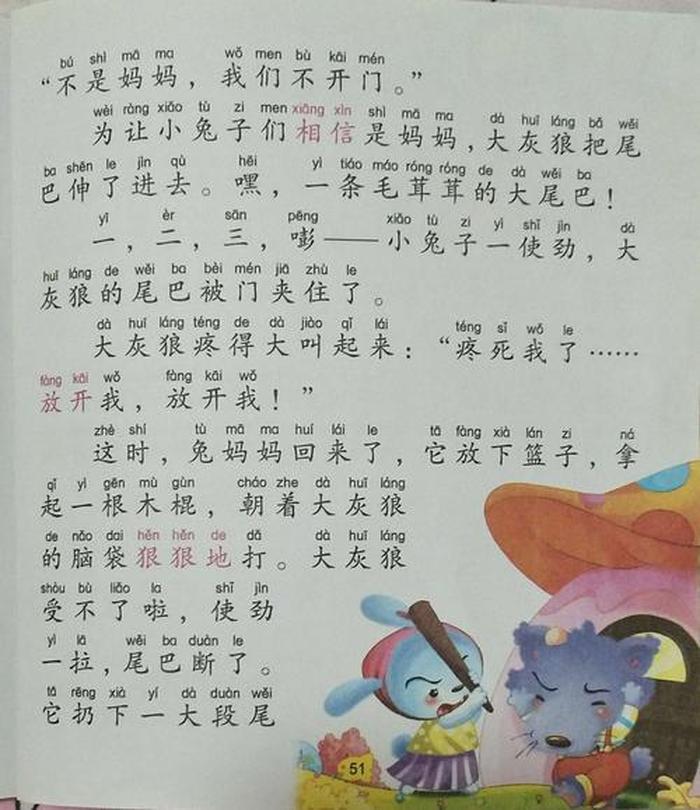 bú shì mā ma wǒ men bù kāi mén
“不是妈妈，我们不开门。”
wèi ràng xiǎo tù zi men xiāng xìn shì mā ma dà huī láng bǎ wěi
为让小兔子们相信是妈妈，大灰狼把尾
ba shēn le jìn qù hēi yì tiáo máo róng róng de dà wěi ba
巴伸了进去。嘿，一条毛茸茸的大尾巴！
yī èr sān pēng xiǎo tù zi yì shǐ jìn dà
一，二，三，嘭——小兔子一使劲，大
huī láng de wěi ba bèi mén jiā zhù le
灰狼的尾巴被门夹住了。
dà huī láng téng de dà jiào qǐ lái téng sǐ wǒ le
大灰狼疼得大叫起来：“疼死我了……
fàng kāi wǒ fàng kāi wǒ
放开我，放开我！”
zhè shí tù mā ma huí lái le tā fàng xià lán zi ná
这时，兔妈妈回来了，它放下篮子，拿
qǐ yì gēn mù gùn cháo zhe dà huī láng
起一根木棍，朝着大灰狼
de nǎo dai hěn hěn de dǎ dà huī láng
的脑袋狠狠地打。大灰狼
shòu bù liǎo la shǐ jìn
受不了啦，使劲
yì lā wěi ba duàn le
一拉，尾巴断了。
tā rēng xià yí dà duàn wěi
它扔下一大段尾
51